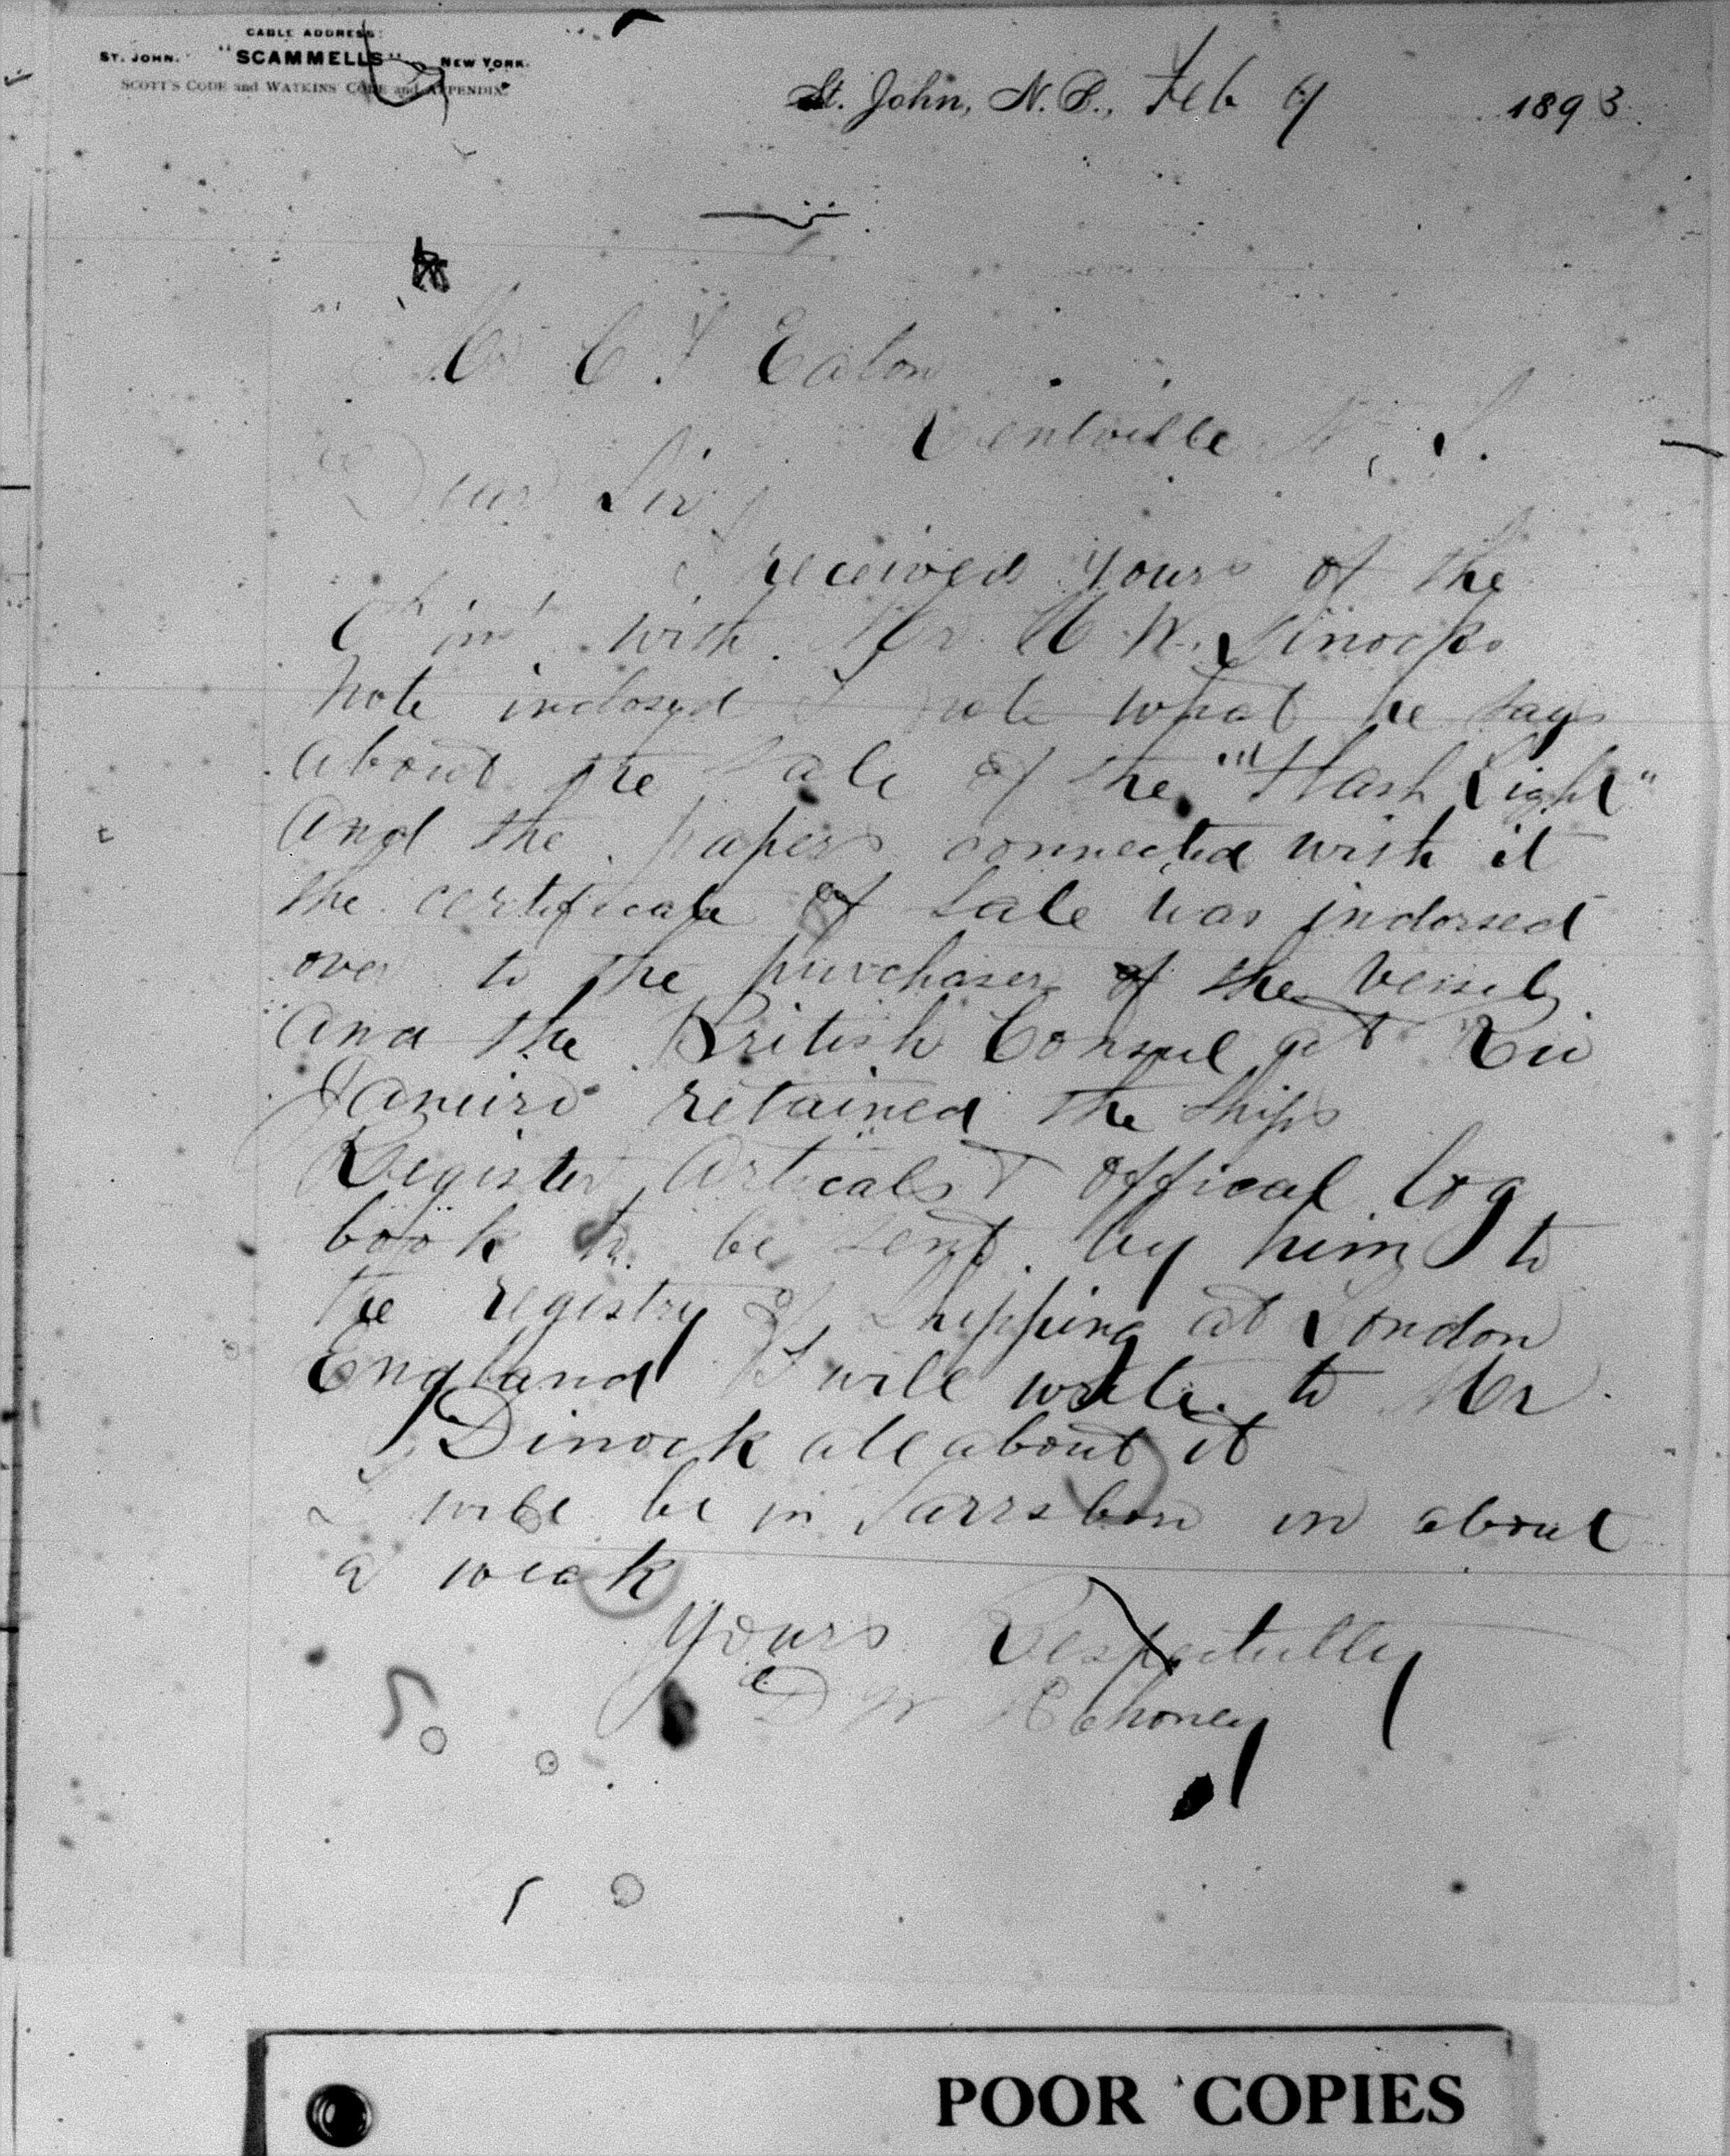 CABLE ADDRESS:
ST. JOHN. "SCAMMELLS" NEW YORK.
SCOTT'S CODE and WATKINS CODE and APPENDIX.
St. John, N.B., Feb 9 1893.
C. Eaton
Kentville N. S.
Dear Sir
I received yours of the
inst with Mr. W. Dinocks
note inclosed I note what he says
about the sale of the "Flash Light"
and the papers connected with it
the certificate of sale was indorsed
over to the purchaser of the vessel
and the British Consul at Rio
Janeiro retained the ships
Register Articals & offical log
book to be sent by him to
the registry of shipping at London
England I will write to Mr
Dinock all about it
I will be in Parrsboro in about
a weak
Yours Respectfully
D W
POOR COPIES